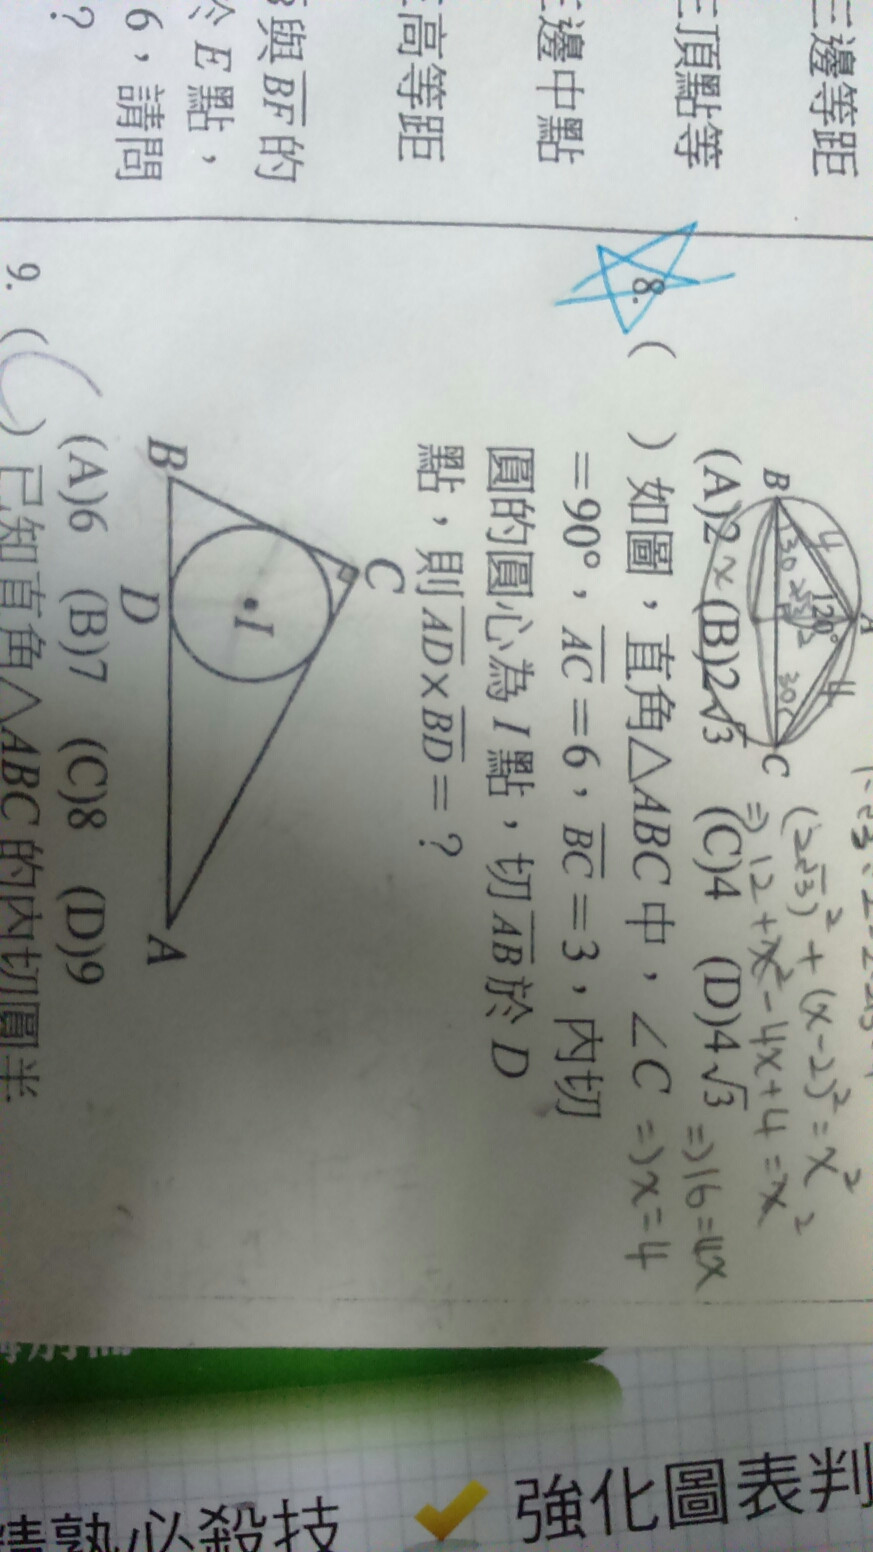 三邊等距
三頂點等
三邊中點
三高等距
與BF的
於E點，
6，請問
？
A
4
4
120°
B
30
30
C
(2√3)²+(x-2)²=x²
=>12+x²-4x+4=x²
=>16=4x
=>x=4
(A)2 (B)2√3 (C)4 (D)4√3
8. ( ) 如圖，直角△ABC中，∠C
=90°，AC=6，BC=3，內切
圓的圓心為I點，切AB於D
點，則AD×BD=？
C
I
B
D
A
(A)6 (B)7 (C)8 (D)9
9. (C) 已知直角△ABC的內切圓半
強化圖表判
精熟必殺技